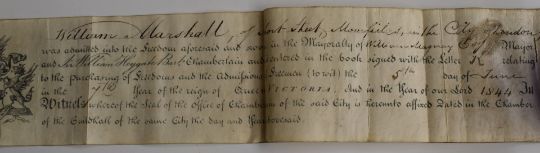 William Marshall, of Fort Street, Moorfields, in the City of London
was admitted into the Freedom aforesaid and sworn in the Mayoralty of William Magnay Esqr Mayor
and Sir William Heygate Bart Chamberlain and entered in the book signed with the Letter relating
to the purchasing of Freedoms and the Admissions of Freemen (to wit) the 5th day of June
in the 7th Year of the reign of Queen VICTORIA, And in the Year of our Lord 1844 In
Witness whereof the Seal of the Office of Chamberlain of the said City is hereunto affixed Dated in the Chamber
of the Guildhall of the same City the day and Year abovesaid.